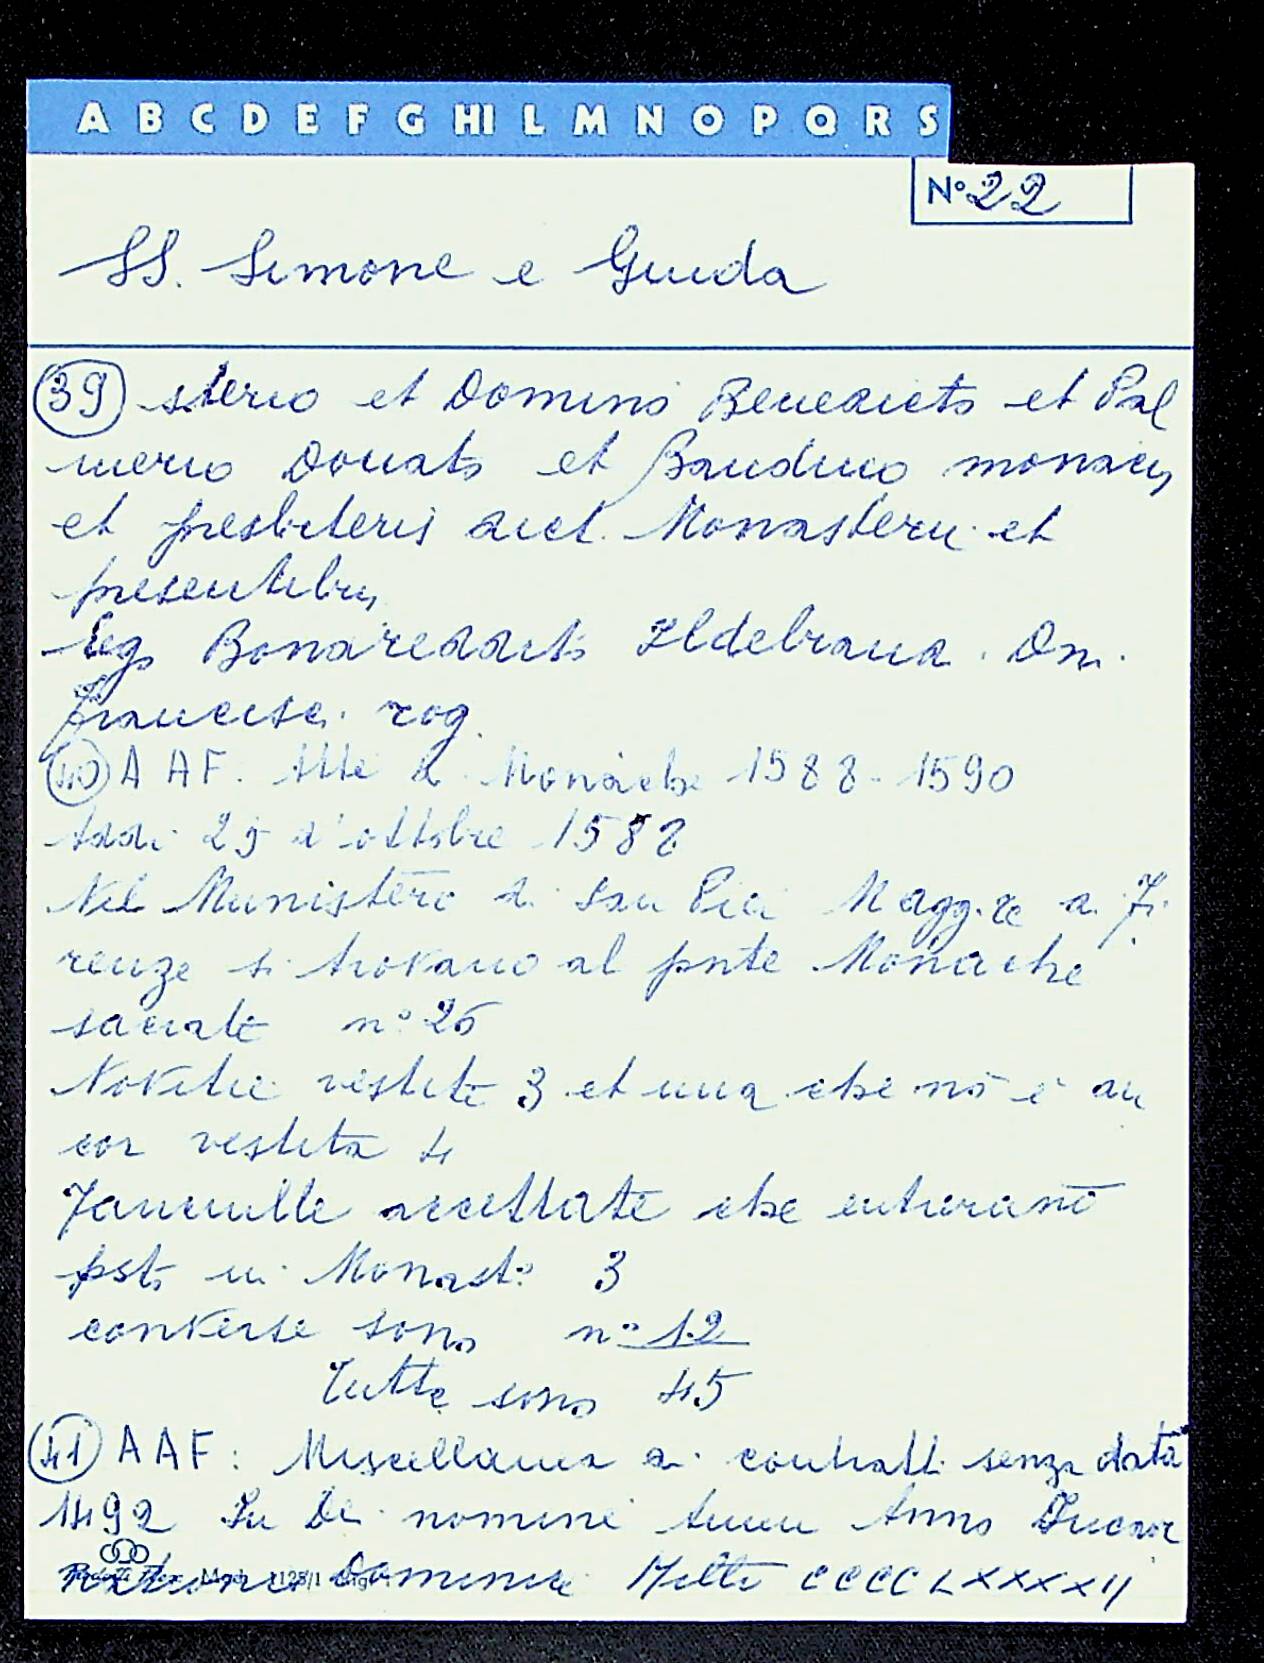 A B C D E F G HI L M N O P Q R S
N° 22
SS. Simone e Giuda
39 sterio et Domino Benedicto et Pal
merio Donato et Bandino monacis
et presbiteris dict. Monasterii et
presentibus
Ego Bonareddito Ildebrand. Dn.
Francisci rog.
40 AAF. Atti di Monache 1588-1590
Addi 29 d'ottobre 1588
Nel Munistero di San Pier Magg.re a Fi
renze si trovano al pnte Monache
sacrate n° 26
Novitie vestite 3 et una che nō è an
cor vestita 4
Fanciulle accettate che entrerano
psto in Monast° 3
converse sono n° 12
Tutte sono 45
41 AAF: Miscellanea di contratti senza data
1492 In Dei nomine Amen Anno Incar
Dominice Mille CCCCLXXXXII